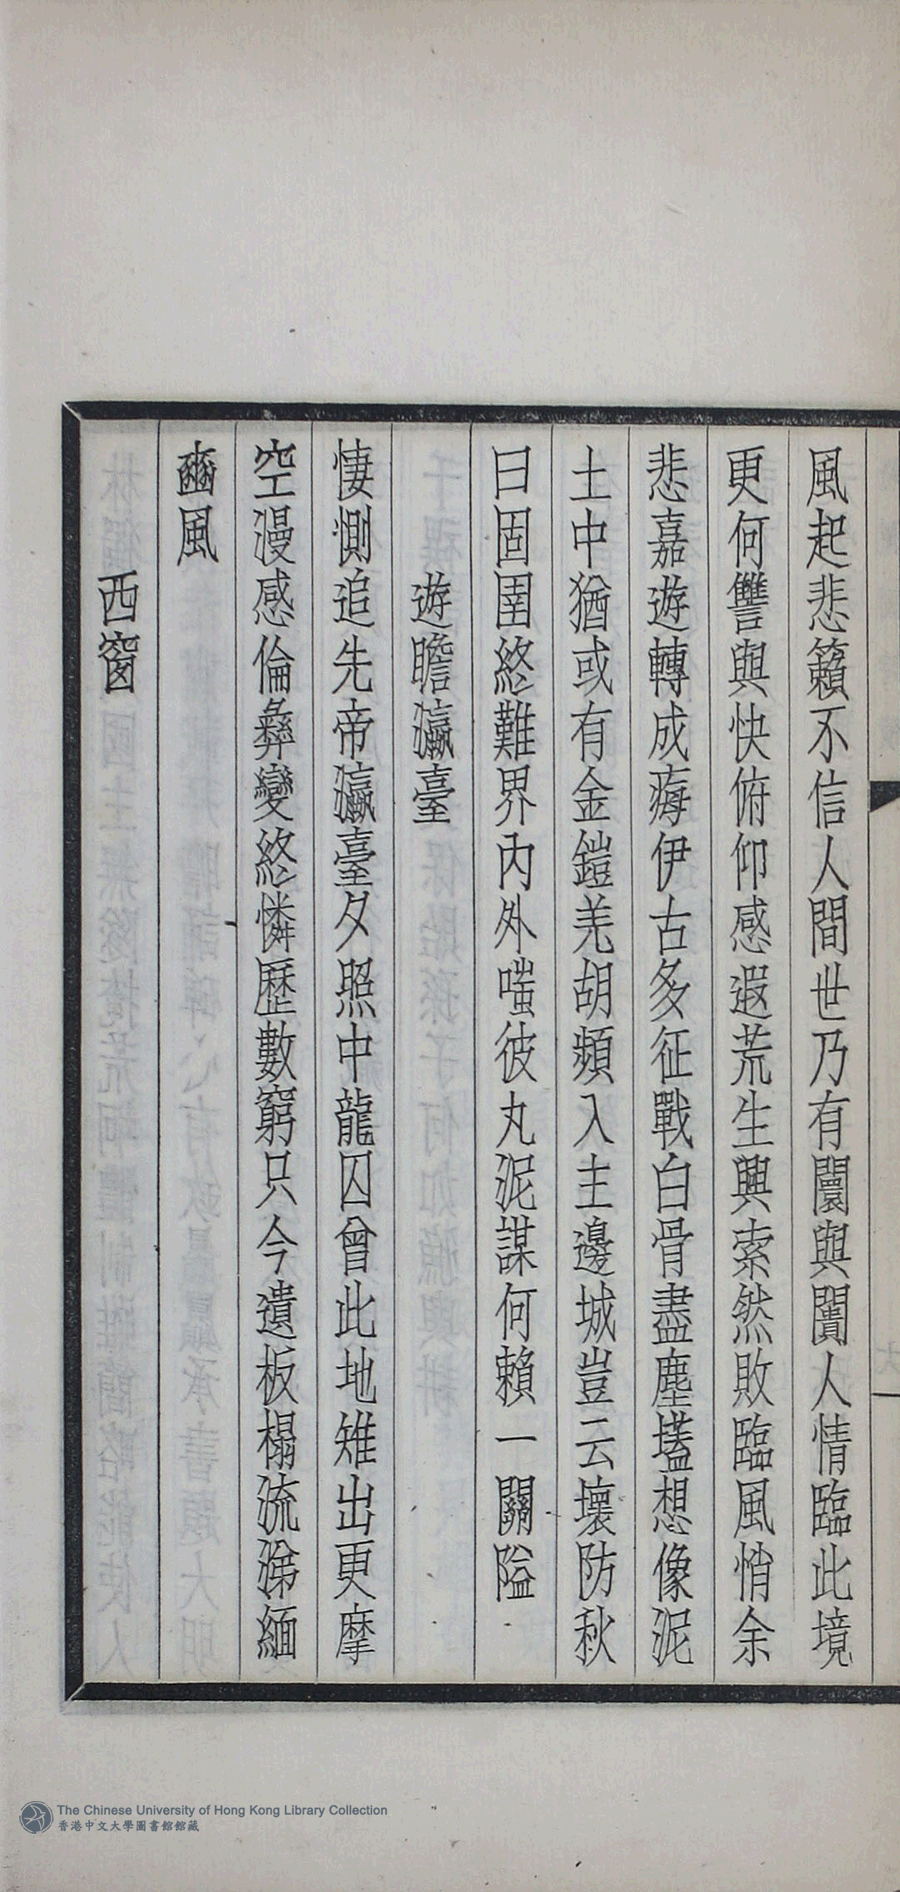 風起悲籟不信人間世乃有闤與闠人情臨此境
更何讐與快俯仰感遐荒生興索然敗臨風悄余
悲嘉遊轉成痗伊古多征戰白骨盡塵壒想像泥
土中猶或有金鎧羌胡頻入主邊城豈云壞防秋
曰固圉終難界內外嗤彼丸泥謀何賴一關隘
遊瞻瀛臺
悽惻追先帝瀛臺夕照中龍囚曾此地雉出更摩
空漫感倫彝變終憐歷數窮只今遺板榻流涕緬
豳風
西窗
The Chinese University of Hong Kong Library Collection
香港中文大學圖書館館藏